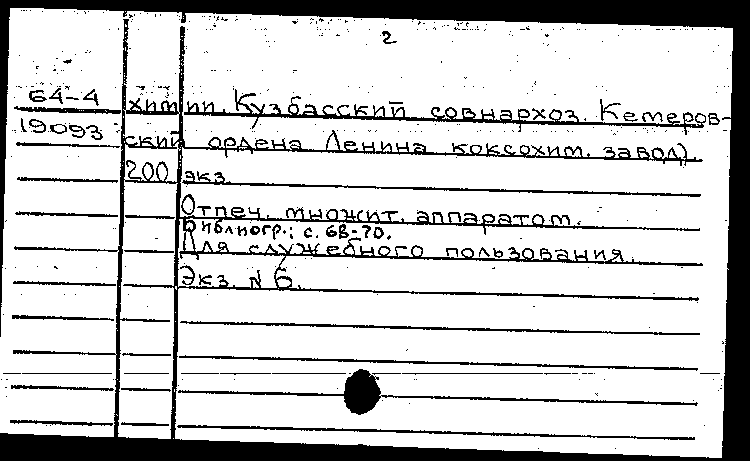 2
64-4 химии. Кузбасский совнархоз. Кемеров-
19093 ский ордена Ленина коксохим. завод).
200 экз.
Отпеч. множит. аппаратом.
Библиогр.: с. 68-70.
Для служебного пользования.
Экз. N 6.